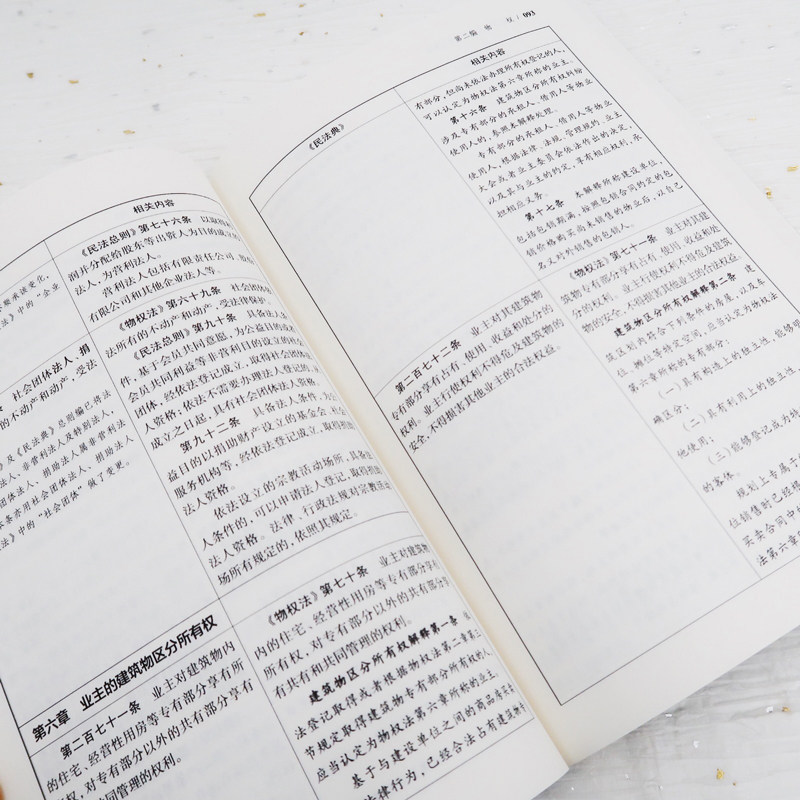 相关内容
《民法总则》第七十六条 以取得
润并分配给股东等出资人为目的成立
法人,为营利法人。
营利法人包括有限责任公司
有限公司和其他企业法人等。
要承读变化,
法》中的“企业
《物权法》第六十九条 社会团体
法所有的不动产和动产,受法律保护
《民法总则》第九十条 具备法人
件,基于会员共同意愿,为公益目的或
会员共同利益等非营利目的设立的社
团体,经依法登记成立,取得社会团体
人资格;依法不需要办理法人登记的,
成立之日起,具有社会团体法人资格。
第九十二条 具备法人条件,为公
益目的以捐助财产设立的基金会、社会
服务机构等,经依法登记成立,取得捐助
法人资格。
依法设立的宗教活动场所,具备法
人条件的,可以申请法人登记,取得捐助
法人资格。法律、行政法规对宗教活动
场所有规定的,依照其规定。
社会团体法人、捐
的不动产和动产,受法
及《民法典》总则编已将法
法人、非营利法人及特别法人,
团体法人、捐助法人属非营利法
本条亦用社会团体法人、捐助法人
法》中的“社会团体”做了变更。
第六章 业主的建筑物区分所有权
第二百七十一条 业主对建筑物内
的住宅、经营性用房等专有部分享有所
有权,对专有部分以外的共有部分享有
共同管理的权利。
《物权法》第七十条 业主对建筑物
内的住宅、经营性用房等专有部分享有
所有权,对专有部分以外的共有部分享
有共有和共同管理的权利。
建筑物区分所有权解释第一条 依
法登记取得或者根据物权法第二章第三
节规定取得建筑物专有部分所有权的人,
应当认定为物权法第六章所称的业主。
基于与建设单位之间的商品房买卖
法律行为,已经合法占有建筑物
第二编 物 权 / 093
《民法典》
相关内容
有部分,但尚未依法办理所有权登记的人,
可以认定为物权法第六章所称的业主。
第十六条 建筑物区分所有权纠纷
涉及专有部分的承租人、借用人等物业
使用人的,参照本解释处理。
专有部分的承租人、借用人等物业
使用人,根据法律、法规、管理规约、业主
大会或者业主委员会依法作出的决定,
以及其与业主的约定,享有相应权利,承
担相应义务。
第十七条 本解释所称建设单位,
包括包销期满,按照包销合同约定的包
销价格购买尚未销售的物业后,以自己
名义对外销售的包销人。
第二百七十二条 业主对其建筑物
专有部分享有占有、使用、收益和处分的
权利。业主行使权利不得危及建筑物的
安全,不得损害其他业主的合法权益。
《物权法》第七十一条 业主对其建
筑物专有部分享有占有、使用、收益和处
分的权利。业主行使权利不得危及建筑
物的安全,不得损害其他业主的合法权益。
建筑物区分所有权解释第二条 建
筑区划内符合下列条件的房屋,以及车
位、摊位等特定空间,应当认定为物权法
第六章所称的专有部分:
(一)具有构造上的独立性,能够明
确区分;
(二)具有利用上的独立性,
他使用;
(三)能够登记成为特
的客体。
规划上专属于
位销售时已经根
买卖合同中
法第六章